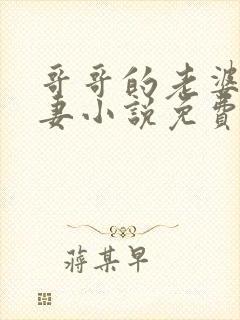 哥哥的老婆
妻小說免費
蔣某早